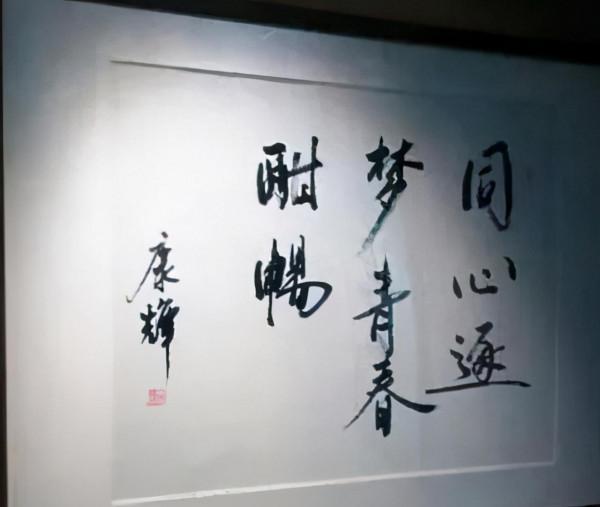 同心逐
梦青春
酣畅
康辉